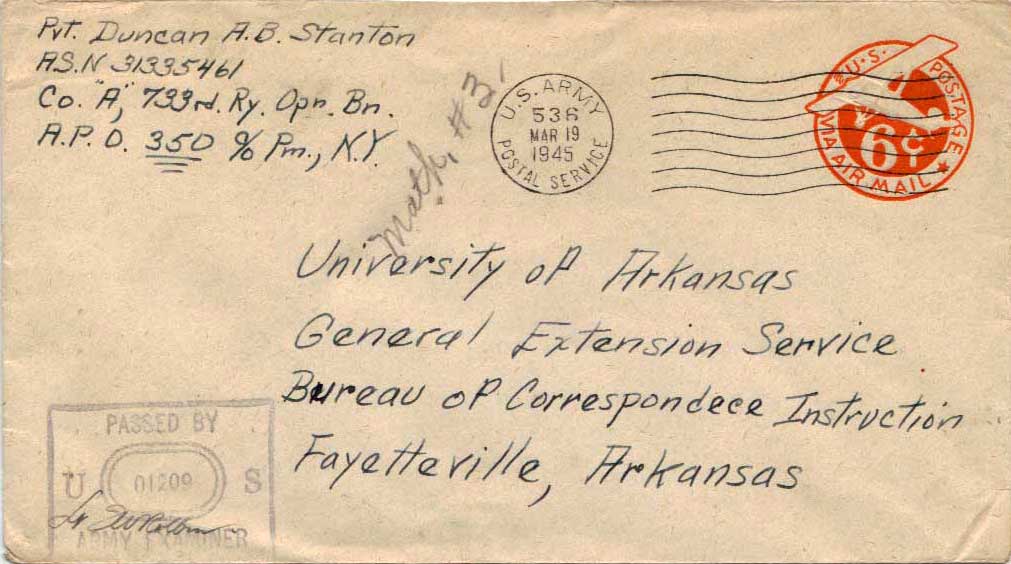 Pvt. Duncan A.B. Stanton
A.S.N 31335461
Co. "A", 733rd. Ry. Opn. Bn.
A.P.O. 350 c/o Pm., N.Y.
Math, #3,
U.S. ARMY
536
MAR 19
1945
POSTAL SERVICE
U.S. POSTAGE
6¢
VIA AIR MAIL
University of Arkansas
General Extension Service
Bureau of Correspondece Instruction
Fayetteville, Arkansas
PASSED BY
U 01209 S
ARMY EXAMINER